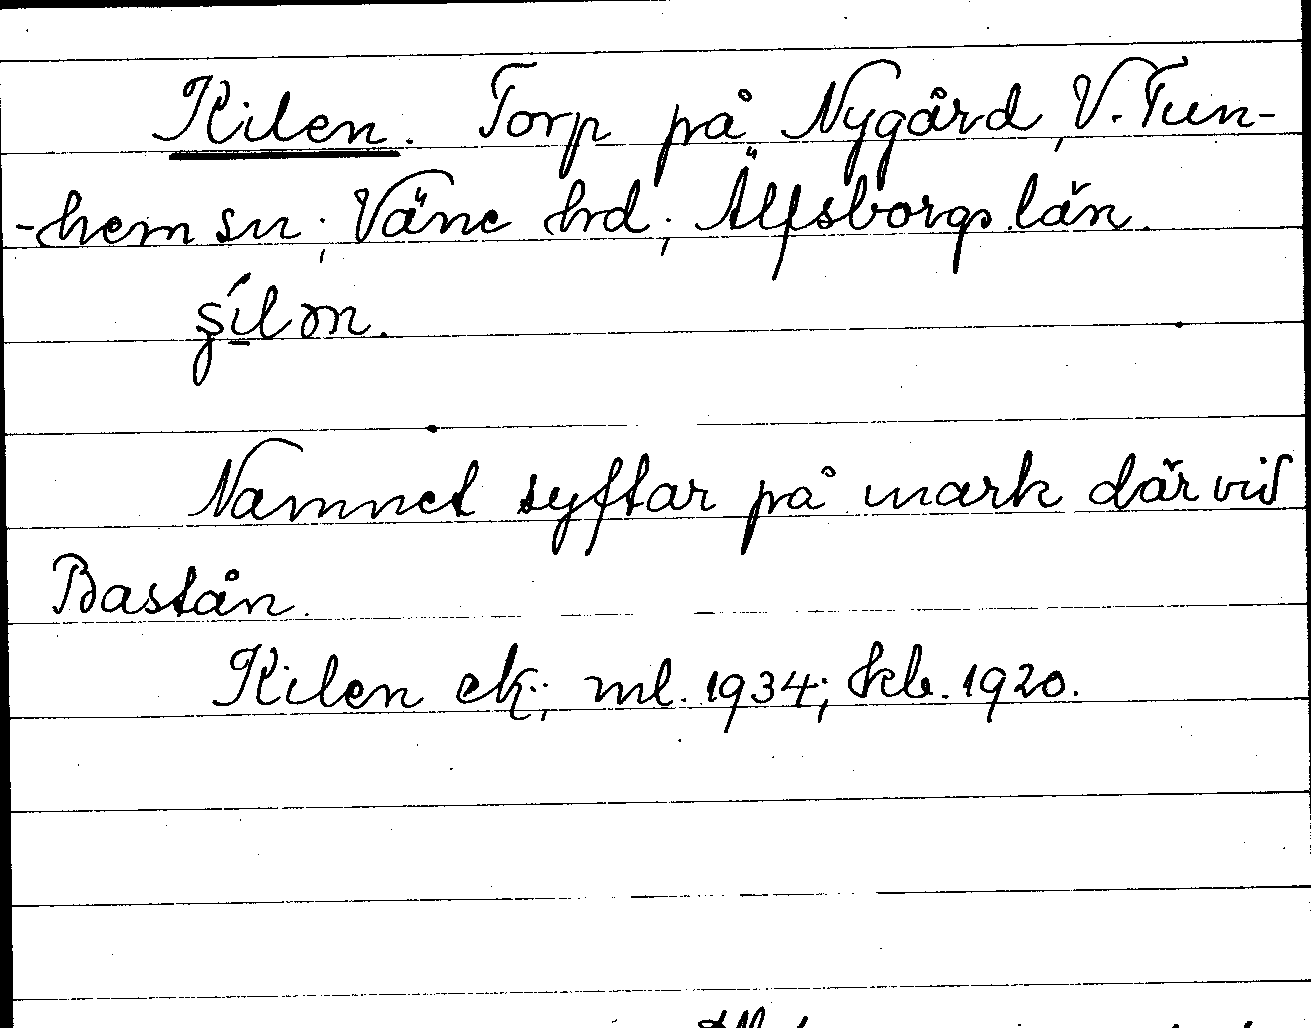 Kilen. Torp på Nygård, V. Tun-
-hem sn; Väne hd; Älfsborgs län.
Namnet syftar på mark där vid
Bastån.
Kilen ek.; ml. 1934; kb. 1920.